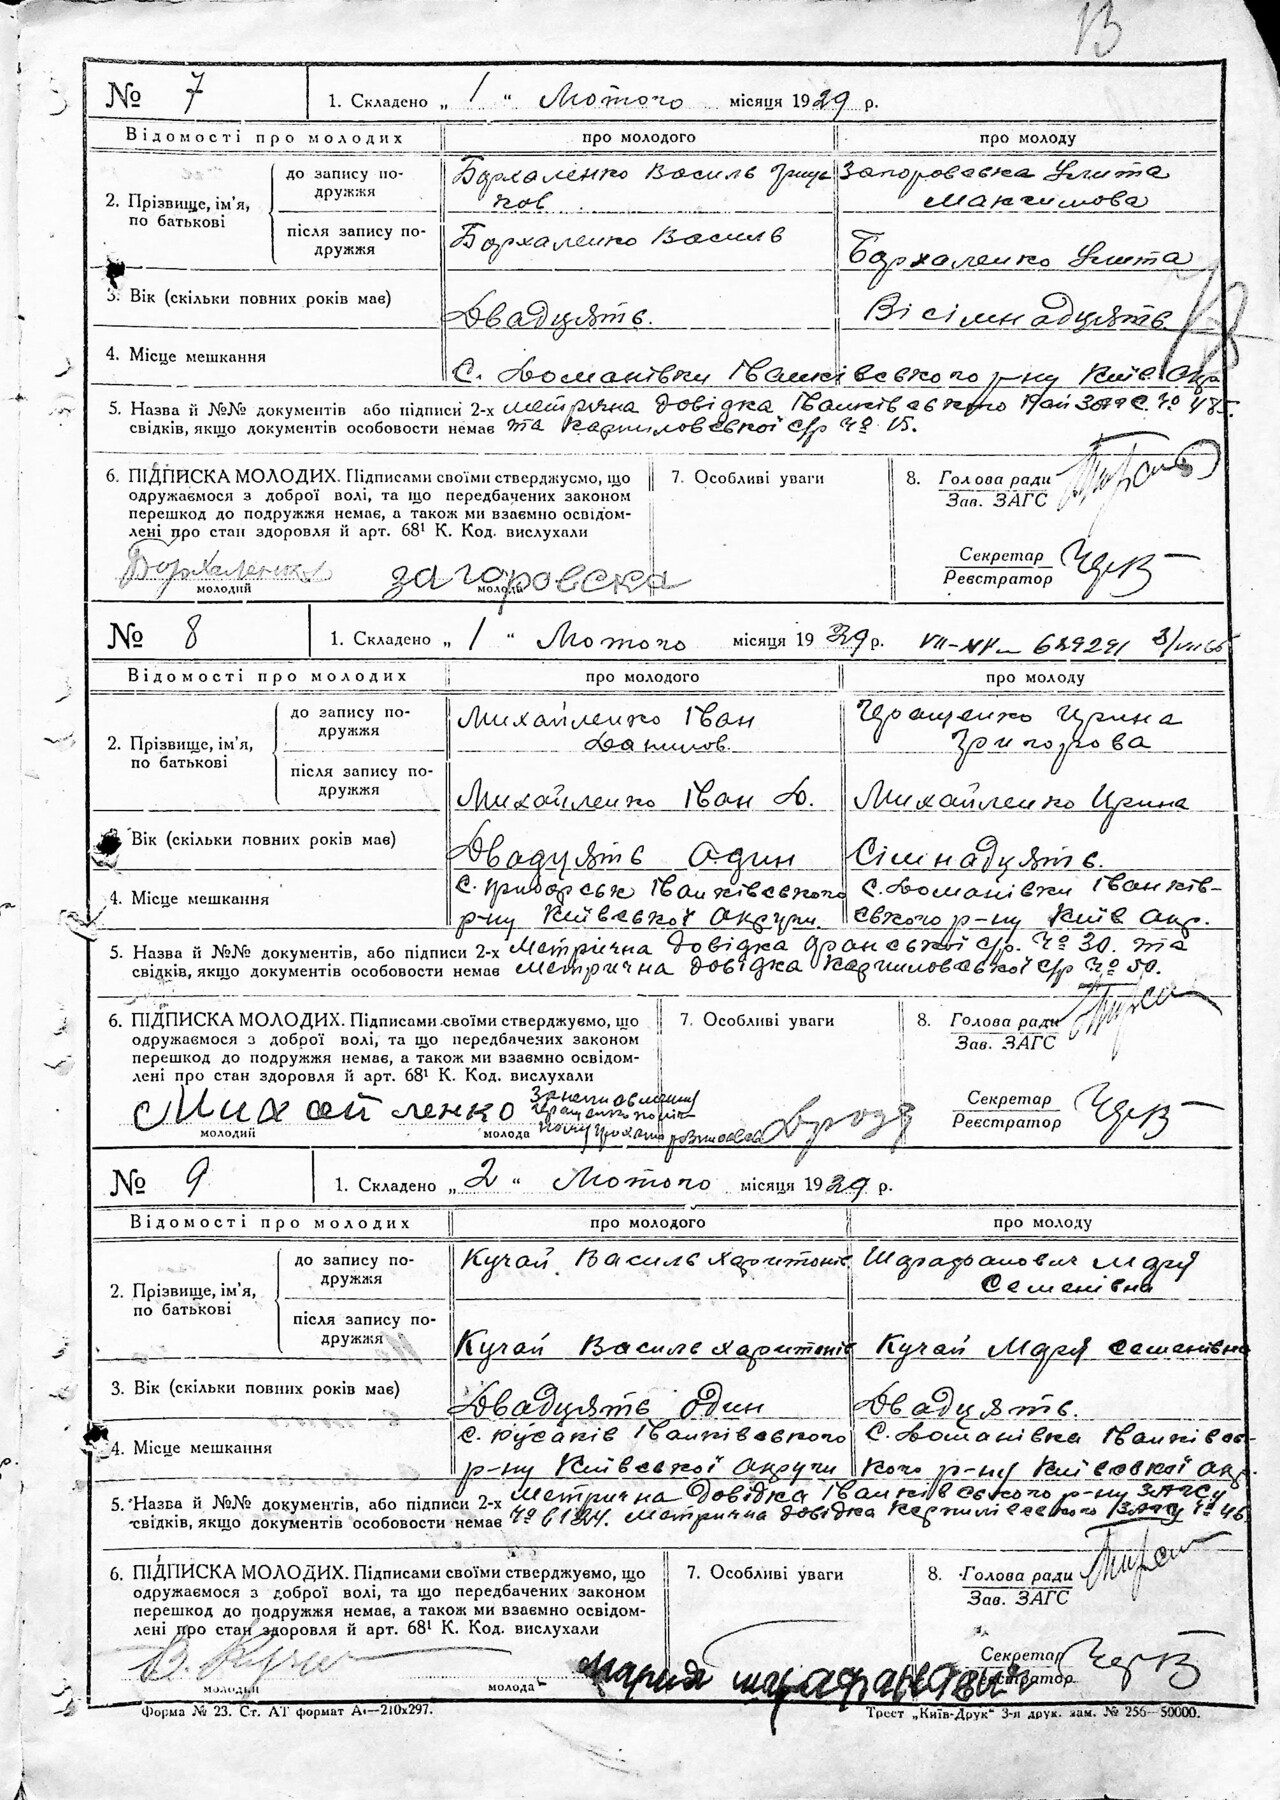 13
№ 7 1. Складено „ 1 “ Лютого місяця 1929 р.
Відомості про молодих про молодого про молоду
2. Прізвище, ім'я, по батькові
до запису подружжя
Борхаленко Василь Грицьков
Загоровська Улита Максимова
після запису подружжя
Борхаленко Василь
Борхаленко Улита
3. Вік (скільки повних років має) Двадцять. Вісімнадцять.
4. Місце мешкання С. Доманівки Іванківського р-ну Київ Окр
5. Назва й №№ документів або підписи 2-х Метрична довідка Іванківського Рай ЗАГС № 485.
свідків, якщо документів особовости немає та Карпиловської с/р № 15.
6. ПІДПИСКА МОЛОДИХ. Підписами своїми стверджуємо, що
одружаємося з доброї волі, та що передбачених законом
перешкод до подружжя немає, а також ми взаємно освідом-
лені про стан здоровля й арт. 68¹ К. Код. вислухали
Борхаленко загоровска
молодий молода
7. Особливі уваги
8. Голова ради
Зав. ЗАГС
Секретар
Реєстратор
№ 8 1. Складено „ 1 “ Лютого місяця 1929 р.
Відомості про молодих про молодого про молоду
2. Прізвище, ім'я, по батькові
до запису подружжя
Михайленко Іван Данилов.
Ірина Григорова
після запису подружжя
Михайленко Іван Д.
Михайленко Ирина
Вік (скільки повних років має) Двадцять один Сімнадцять.
4. Місце мешкання
С. Приборськ Іванківського
р-ну Київської Округи.
С. Доманівки Іванків-
ського р-ну Київ Окр.
5. Назва й №№ документів, або підписи 2-х Метрична довідка с/р. № 30. та
свідків, якщо документів особовости немає метрична довідка Карпиловської с/р № 50.
6. ПІДПИСКА МОЛОДИХ. Підписами своїми стверджуємо, що
одружаємося з доброї волі, та що передбачених законом
перешкод до подружжя немає, а також ми взаємно освідом-
лені про стан здоровля й арт. 68¹ К. Код. вислухали
Михайленко
молодий молода
7. Особливі уваги
8. Голова ради
Зав. ЗАГС
Секретар
Реєстратор
№ 9 1. Складено „ 2 “ Лютого місяця 1929 р.
Відомості про молодих про молодого про молоду
2. Прізвище, ім'я, по батькові
до запису подружжя
Кучай Василь Харитонів
Шарафанович Марія Семенівна
після запису подружжя
Кучай Василь Харитонів
Кучай Марія Семенівна
3. Вік (скільки повних років має) Двадцять один Двадцять.
4. Місце мешкання
С. Іванківського
р-ну Київської Округи
С. Доманівка Іванківсь-
кого р-ну Київської Окр.
5. Назва й №№ документів, або підписи 2-х Метрична довідка Іванківського р-ну ЗАГСУ
свідків, якщо документів особовости немає № 6124. Метрична довідка ЗАГСУ № 46.
6. ПІДПИСКА МОЛОДИХ. Підписами своїми стверджуємо, що
одружаємося з доброї волі, та що передбачених законом
перешкод до подружжя немає, а також ми взаємно освідом-
лені про стан здоровля й арт. 68¹ К. Код. вислухали
В. Кучай Мария шарафанович
молодий молода
7. Особливі уваги
8. Голова ради
Зав. ЗАГС
Секретар
Реєстратор
Форма № 23. Ст. АТ формат А4—210x297. Трест „Київ-Друк“ 3-я друк. зам. № 256—50000.